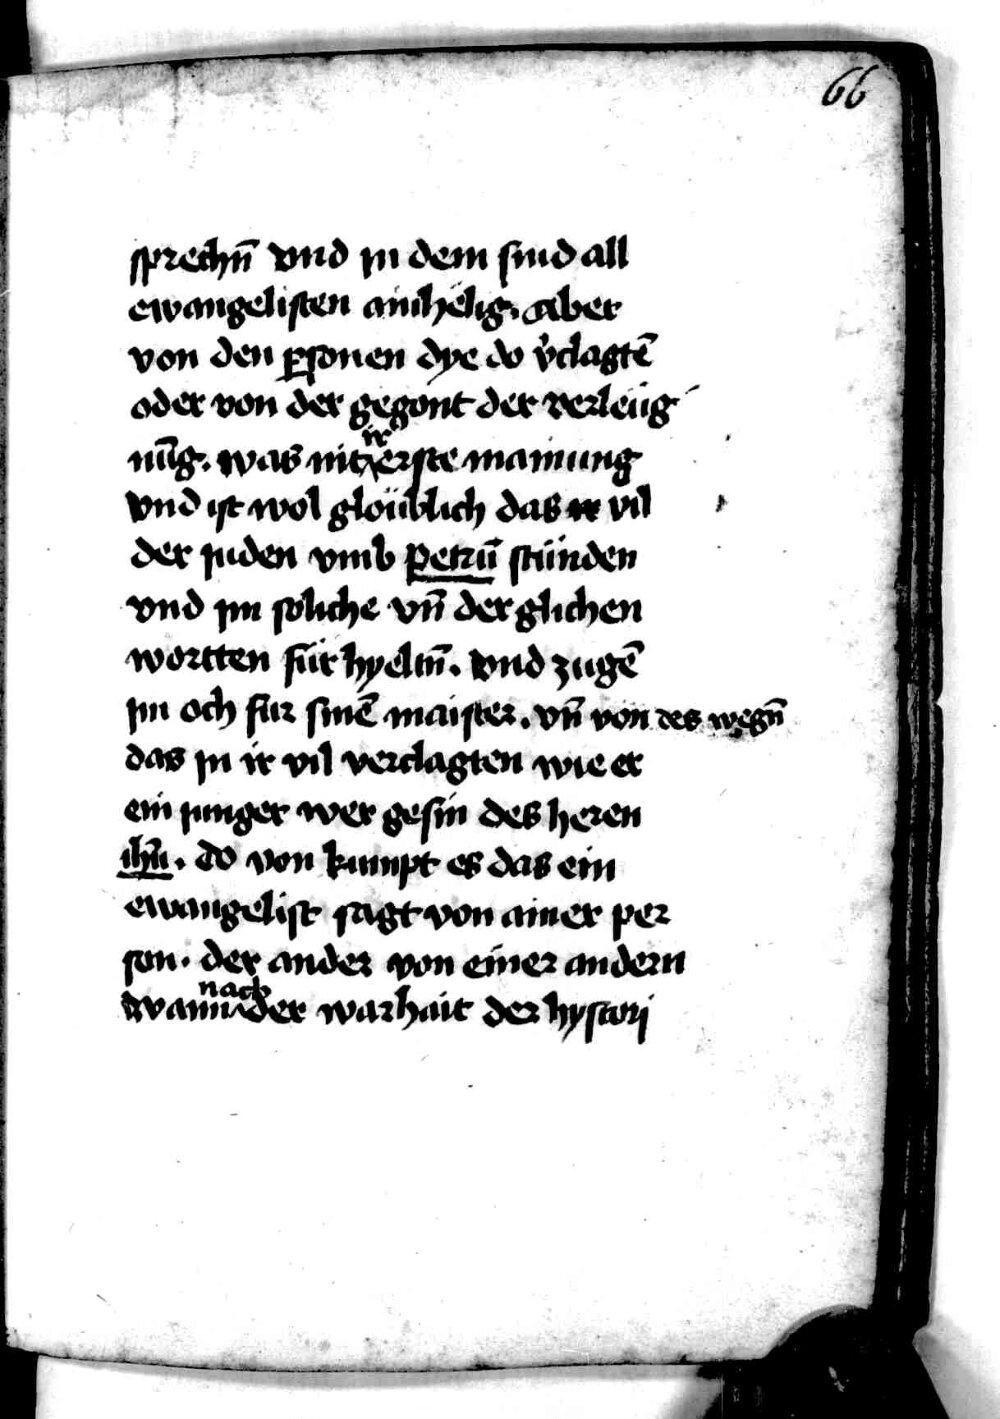 66
sprechn̄ vnd in dem sind all
ewangelisten ainhelig. Aber
von den ꝑsonen dye do v̓clagtē
oder von der gegónt der verleüg
nūg. was nit ir erste mainung
vnd ist wol gloüblich das ir vil
der juden vmb petrū stünden
vnd im soliche vn̄ der glichen
wortten für hyeltn̄. vnd zugē
im och fur sinē maister. vn̄ von des wegn̄
das in ir vil verclagten wie er
ein junger wer gesin des heren
ihū. do von kumpt es das ein
ewangelist sagt von ainer per
son. der ander von einer andern
wann nach der warhait der hystorj